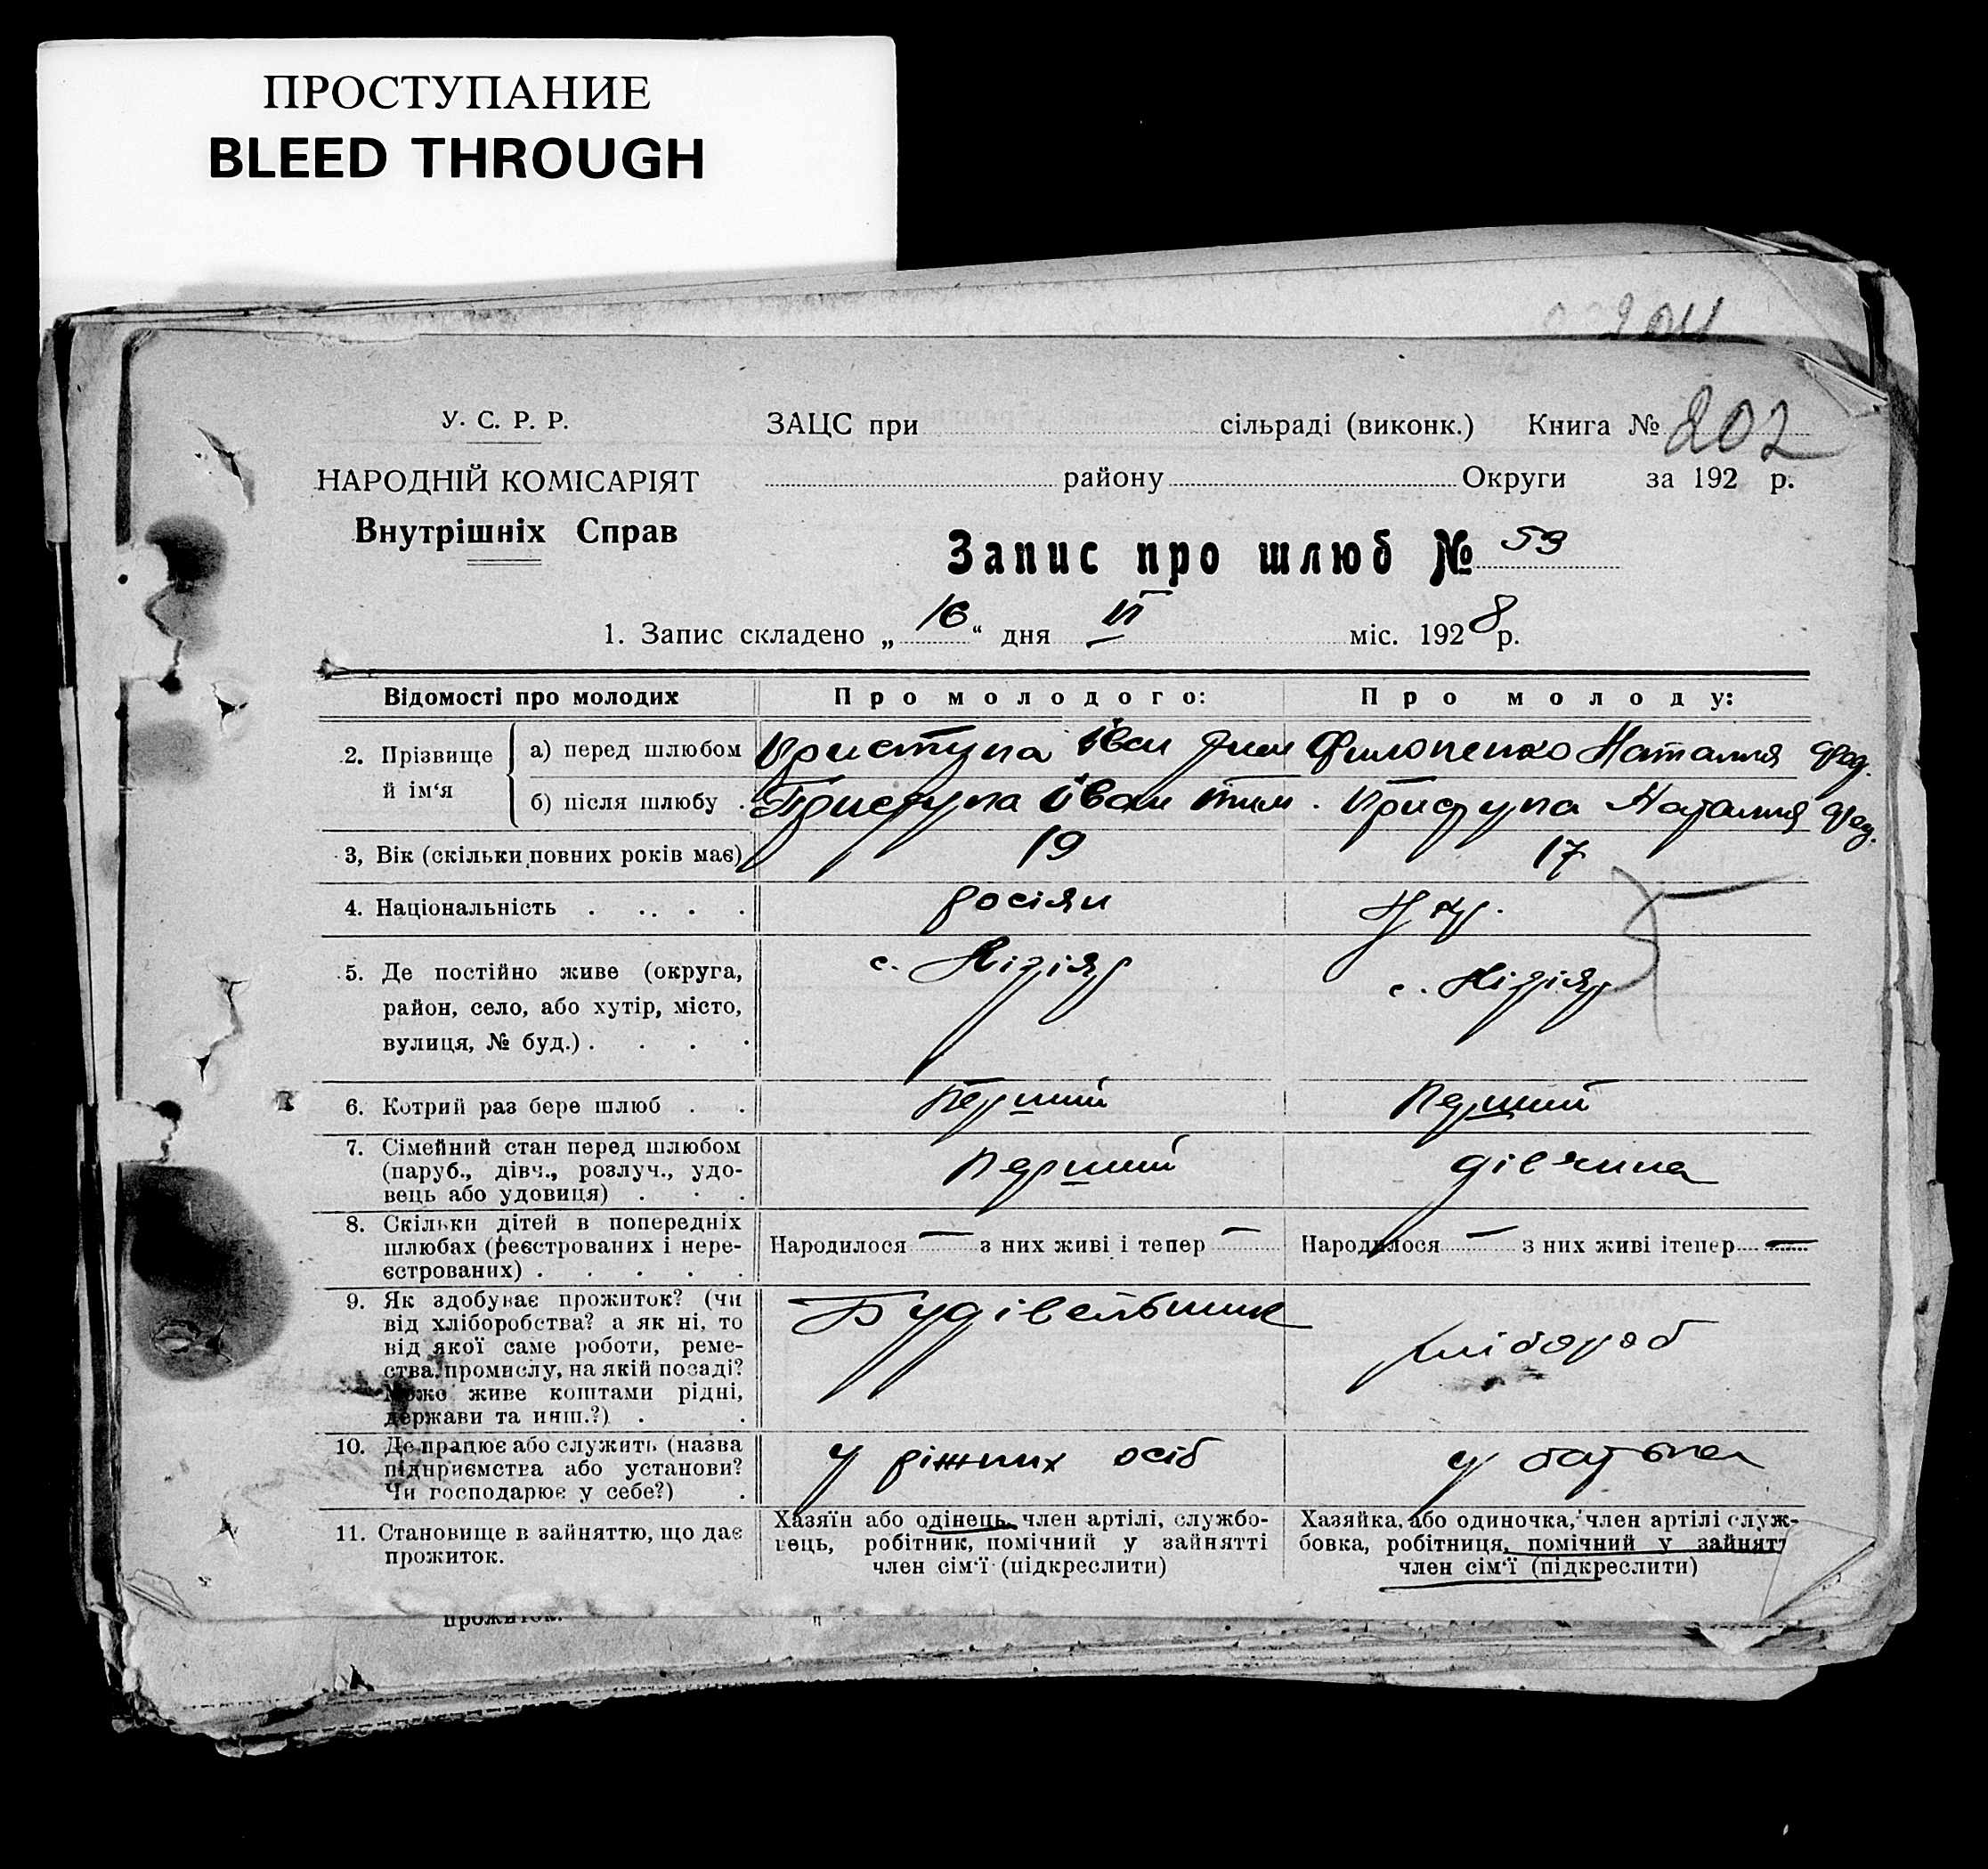 ПРОСТУПАНИЕ
BLEED THROUGH
204
У. С. Р. Р.
ЗАЦС при сільраді (виконк.) Книга № 202
НАРОДНІЙ КОМІСАРІЯТ
району Округи за 192 р.
Внутрішніх Справ
Запис про шлюб № 59
1. Запис складено „16“ дня VI міс. 1928 р.
Відомості про молодих Про молодого: Про молоду:
2. Прізвище й ім‘я
а) перед шлюбом Приступа Іван Тим Филопенко Наталля Фед.
б) після шлюбу . Приступа Іван Тим. Приступа Наталля Фед.
3, Вік (скільки повних років має) 19 17
4. Національність . . . . . росіян Укр.
5. Де постійно живе (округа,
район, село, або хутір, місто,
вулиця, № буд.) . . . .
с.
с.
6. Котрий раз бере шлюб . . Перший Перший
7. Сімейний стан перед шлюбом
(паруб., дівч., розлуч., удо-
вець або удовиця) . . .
Перший дівчина
8. Скільки дітей в попередніх
шлюбах (реєстрованих і нере-
єстрованих) . . . . .
Народилося — з них живі і тепер — Народилося — з них живі ітепер —
9. Як здобуває прожиток? (чи
від хліборобства? а як ні, то
від якої саме роботи, реме-
ства, промислу, на якій посаді?
Може живе коштами рідні,
держави та инш.?) . .
Будівельник хлібороб
10. Де працює або служить (назва
підприємства або установи?
Чи господарює у себе?) .
у ріжних осіб у батька
11. Становище в зайняттю, що дає
прожиток.
Хазяїн або одінець, член артілі, службо-
вець, робітник, помічний у зайнятті
член сім‘ї (підкреслити)
Хазяйка, або одиночка, член артілі служ-
бовка, робітниця, помічний у зайнятт
член сім‘ї (підкреслити)
прожиток.